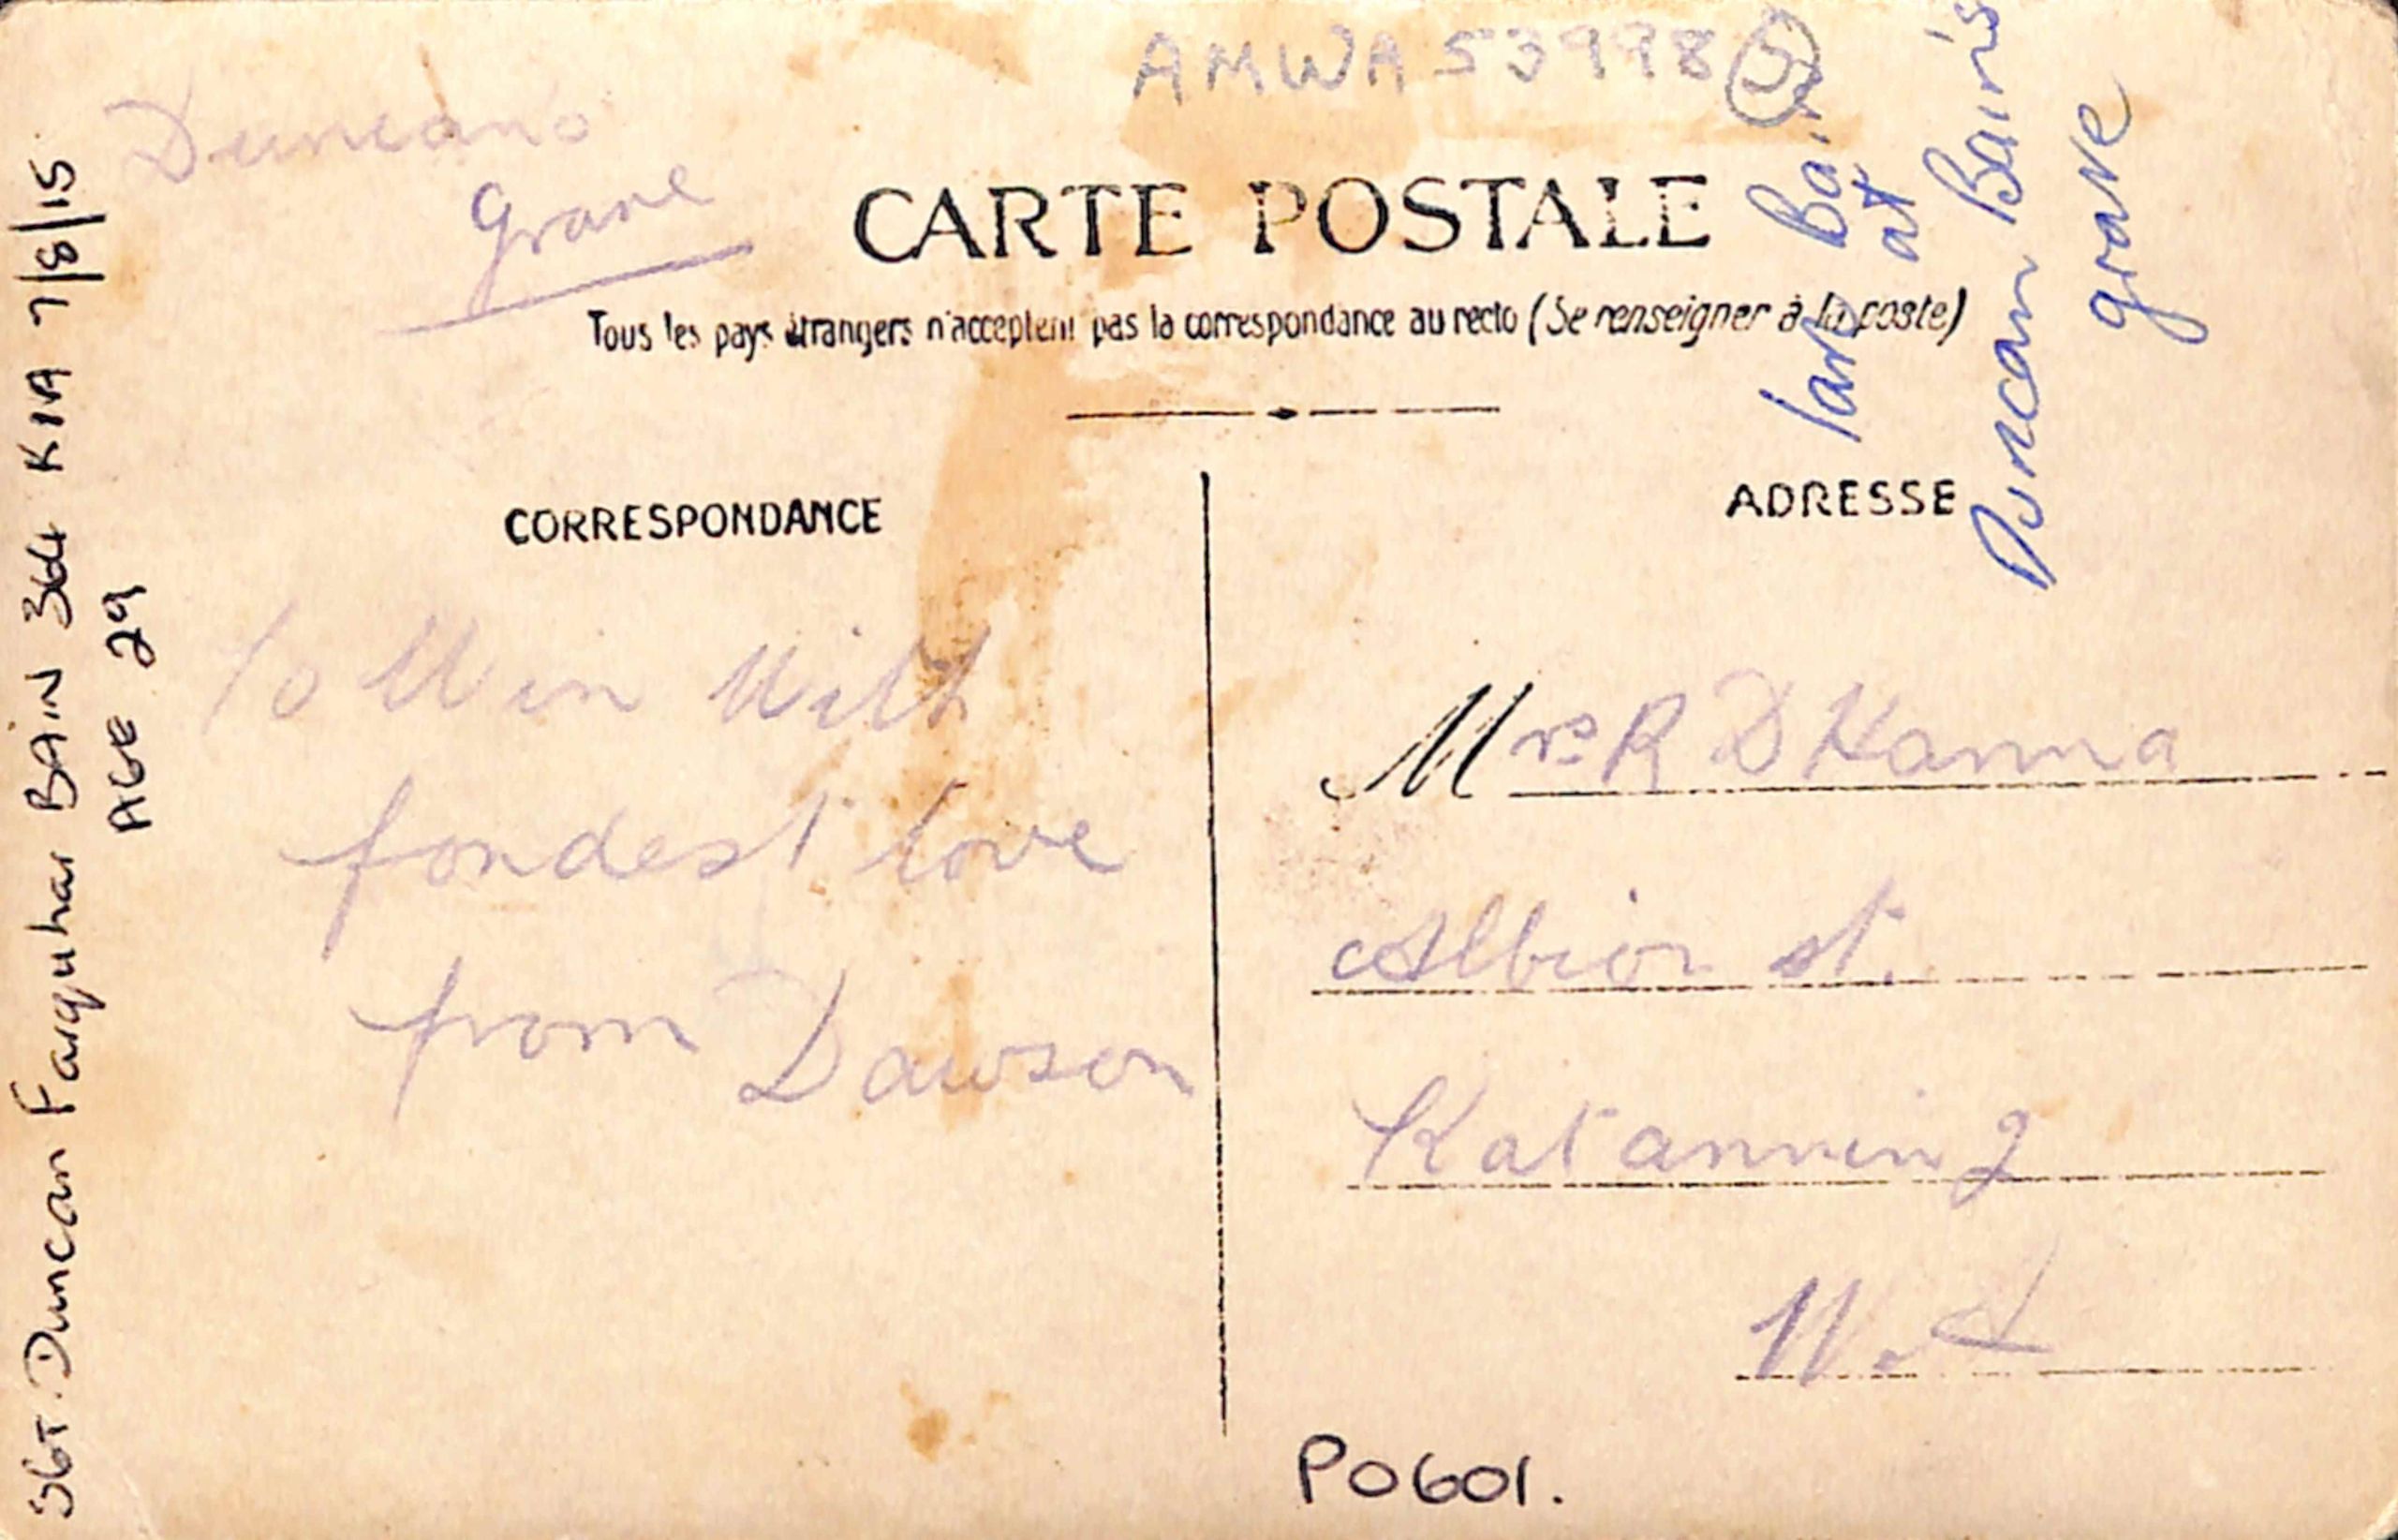 AMWA 53998 5
Duncans
Grave
CARTE POSTALE
Tous les pays étrangers n'acceptent pas la correspondance au recto (Se renseigner à la poste)
CORRESPONDANCE
ADRESSE
To Win With
fondest love
from Dawson
Mrs R D Hanna
Albion st.
Katanning
W.A
P0601.
SGT. Duncan Farquhar BAIN 364 KIA 7/8/15
AGE 29
Bain
at
Duncan Bain's
grave